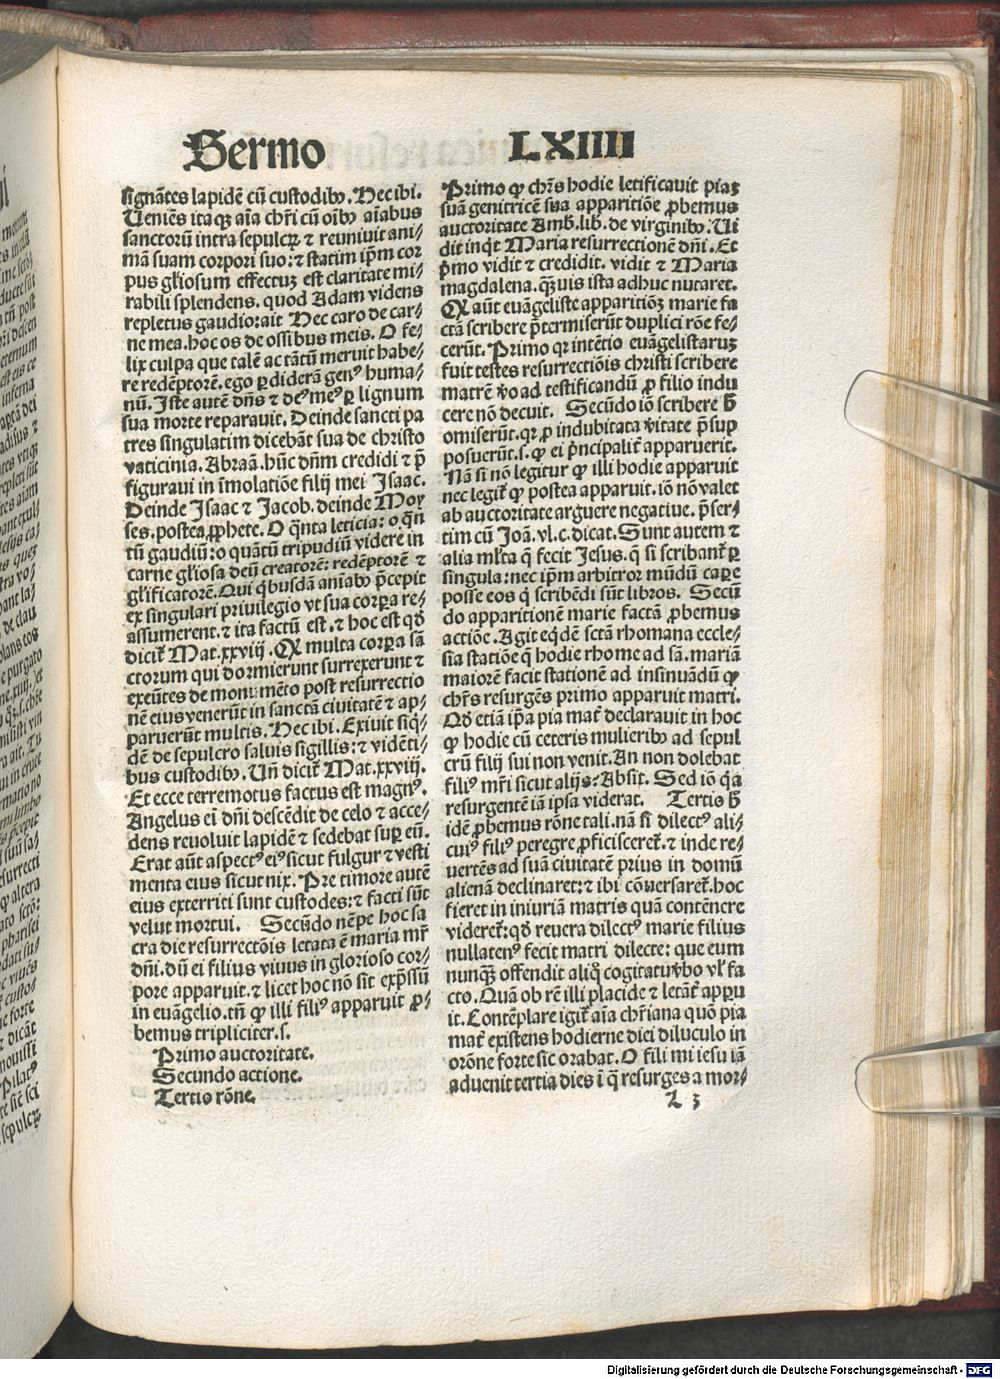 Sermo LXIIII
signātes lapidē cū custodibꝰ. Hec ibi.
Ueniēs itaqꝫ aīa chr̄i cū oībꝰ aīabus
sanctorū intra sepulcrꝫ ⁊ reuniuit ani-
mā suam corpori suo: ⁊ statim ip̄m cor
pus gl̄iosum effectuꝫ est claritate mi-
rabili splendens. quod Adam videns
repletus gaudio: ait Hec caro de car-
ne mea. hoc os de ossibus meis. O fe-
lix culpa que talē ac tātū meruit habe-
re redēptorē. ego ꝑdiderā genꝰ huma-
nū. Iste autē dn̄s ⁊ deꝰ meꝰ ꝑ lignum
sua morte reparauit. Deinde sancti pa
tres singulatim dicebāt sua de christo
vaticinia. Abraā. hūc dn̄m credidi ⁊ p̄
figuraui in īmolatiōe filij mei Isaac.
Deinde Isaac ⁊ Jacob. deinde Moy
ses. postea ꝓphete. O q̄nta leticia: o q̄n
tū gaudiū: o quātū tripudiū videre in
carne gl̄iosa deū creatorē: redēptorē ⁊
gl̄ificatorē. Qui q̄busdā aniabꝰ p̄cepit
ex singulari priuilegio vt sua corꝑa re-
assumerent. ⁊ ita factū est. ⁊ hoc est qd̄
dicit̄ Mat. xxviij. Qꝫ multa corꝑa sā
ctorum qui dormierunt surrexerunt ⁊
exeūtes de monumēto post resurrectio
nē eius venerūt in sanctā ciuitatē ⁊ ap-
paruerūt multis. Hec ibi. Exiuit siq̄-
dē de sepulcro saluis sigillis: ⁊ vidēti-
bus custodibꝰ. Un̄ dicit̄ Mat. xxviij.
Et ecce terremotus factus est magnꝰ.
Angelus ei dn̄i descēdit de celo ⁊ acce-
dens reuoluit lapidē ⁊ sedebat suꝑ eū.
Erat aūt aspectꝰ eiꝰ sicut fulgur ⁊ vesti
menta eius sicut nix. Pre timore autē
eius exterriti sunt custodes: ⁊ facti sūt
velut mortui. Secūdo nēpe hoc sa
cra die resurrectōis letata ē maria mr̄
dn̄i. dū ei filius viuus in glorioso cor-
pore apparuit. ⁊ licet hoc nō sit exp̄ssū
in euāgelio. tn̄ ꝙ illi filiꝰ apparuit ꝓ-
bemus tripliciter. s.
Primo auctoritate.
Secundo actione.
Tertio rōne.
Primo ꝙ chr̄s hodie letificauit piaꝫ
suā genitricē sua apparitiōe ꝓbemus
auctoritate Amb. lib. de virginibꝰ. Ui
dit inq̄t Maria resurrectionē dn̄i. Et
p̄mo vidit ⁊ credidit. vidit ⁊ Maria
magdalena. qꝫuis ista adhuc nutaret.
Qꝫ aūt euāgeliste apparitiōꝫ marie fa
ctā scribere p̄termiserūt duplici rōe fe-
cerūt. Primo qꝛ intētio euāgelistaruꝫ
fuit testes resurrectiōis christi scribere
matrē v̄o ad testificandū ꝓ filio indu
cere nō decuit. Secūdo iō scribere h̄
omiserūt. qꝛ ꝓ indubitata v̄itate p̄sup
posuerūt. s. ꝙ ei p̄ncipalit̄ apparuerit.
Nā si nō legitur ꝙ illi hodie apparuit
nec legit̄ ꝙ postea apparuit. iō nō valet
ab auctoritate arguere negatiue. p̄ser-
tim cū Joā. vl. c. dicat. Sunt autem ⁊
alia ml̄ta q̄ fecit Jesus. q̄ si scribant̄ ꝑ
singula: nec ip̄m arbitror mūdū caꝑe
posse eos q̄ scribēdi sūt libros. Secū
do apparitionē marie factā ꝓbemus
actiōe. Agit eq̄dē sctā rhomana eccle-
sia statiōe q̄ hodie rhome ad sā. mariā
maiorē facit stationē ad insinuādū ꝙ
chr̄s resurgēs primo apparuit matri.
Qd̄ etiā ip̄a pia mat̄ declarauit in hoc
ꝙ hodie cū ceteris mulieribꝰ ad sepul
crū filij sui non venit. An non dolebat
filiꝰ mr̄i sicut alijs? Absit. Sed iō q̄a
resurgentē iā ipsa viderat. Tertio h̄
idē ꝓbemus rōne tali. nā si dilectꝰ ali-
cuiꝰ filiꝰ peregre ꝓficisceret̄. ⁊ inde re-
vertēs ad suā ciuitatē prius in domū
alienā declinaret: ⁊ ibi cōuersaret̄. hoc
fieret in iniuriā matris quā contēnere
videret̄: qd̄ reuera dilectꝰ marie filius
nullatenꝰ fecit matri dilecte: que eum
nunqꝫ offendit aliq̄ cogitatu v̄bo vl̄ fa
cto. Quā ob rē illi placide ⁊ letāt̄ apꝑu
it. Contēplare igit̄ aīa chr̄iana quō pia
mat̄ existens hodierne diei diluculo in
orōne forte sic orabat. O fili mi iesu iā
aduenit tertia dies ī q̄ resurges a mor-
L 3
Digitalisierung gefördert durch die Deutsche Forschungsgemeinschaft - DFG